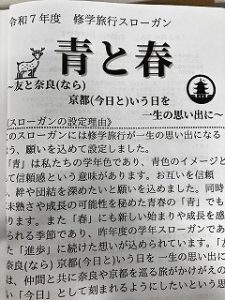 令和７年度　修学旅行スローガン
青と春
~友と奈良(なら)
京都(今日と)いう日を
一生の思い出に~
《スローガンの設定理由》
のスローガンには修学旅行が一生の思い出になる
う、願いを込めて設定しました。
「青」は私たちの学年色であり、青色のイメージと
て信頼感という意味があります。お互いを信頼
、絆や団結を深めたいと願いを込めました。同時
未熟さや成長の可能性を秘めた青春の「青」でも
ます。また「春」にも新しい始まりや成長を感
られる季節であり、昨年度の学年スローガンであ
た「進歩」に続けた想いが込められています。「友
奈良(なら) 京都(今日と)いう日を 一生の思い出に
は、仲間と共に奈良や京都を巡る旅がかけがえの
い「今日」として刻まれるようにしたいという思